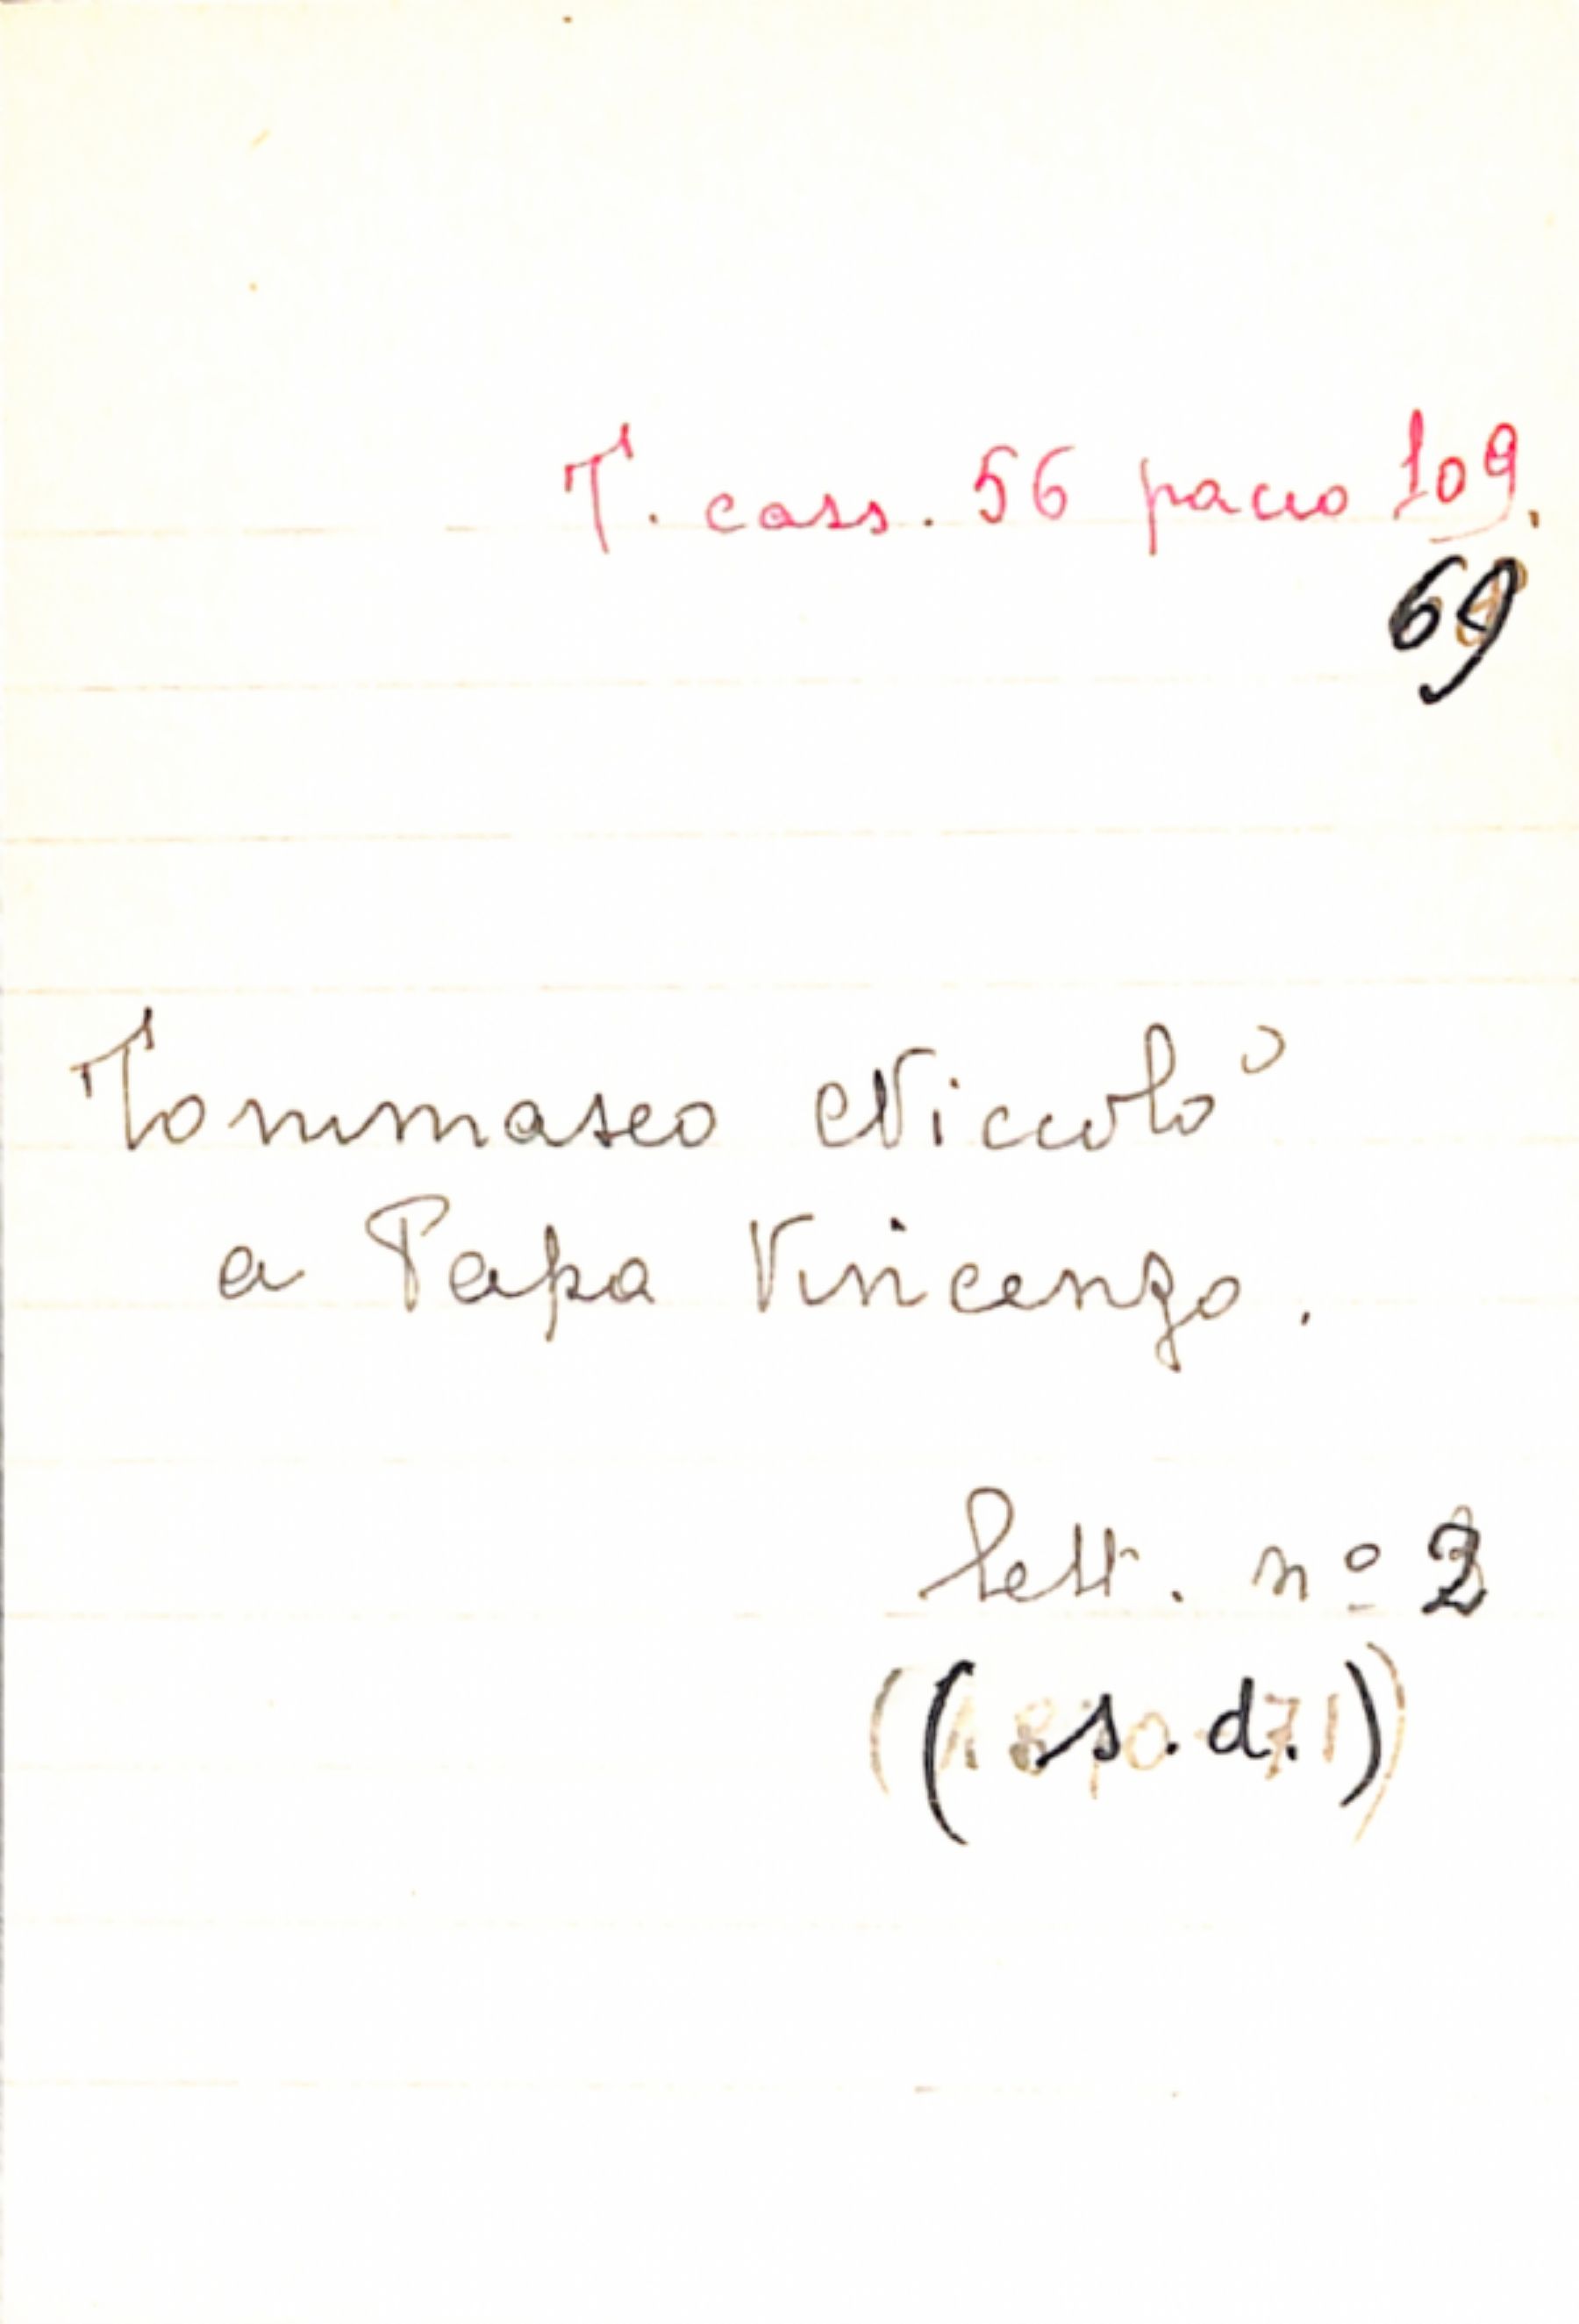 T. cass. 56 pacco 109.
69
Tommaseo Niccolò
a Papa Vincenzo.
lett. nº 2
(s.d.)